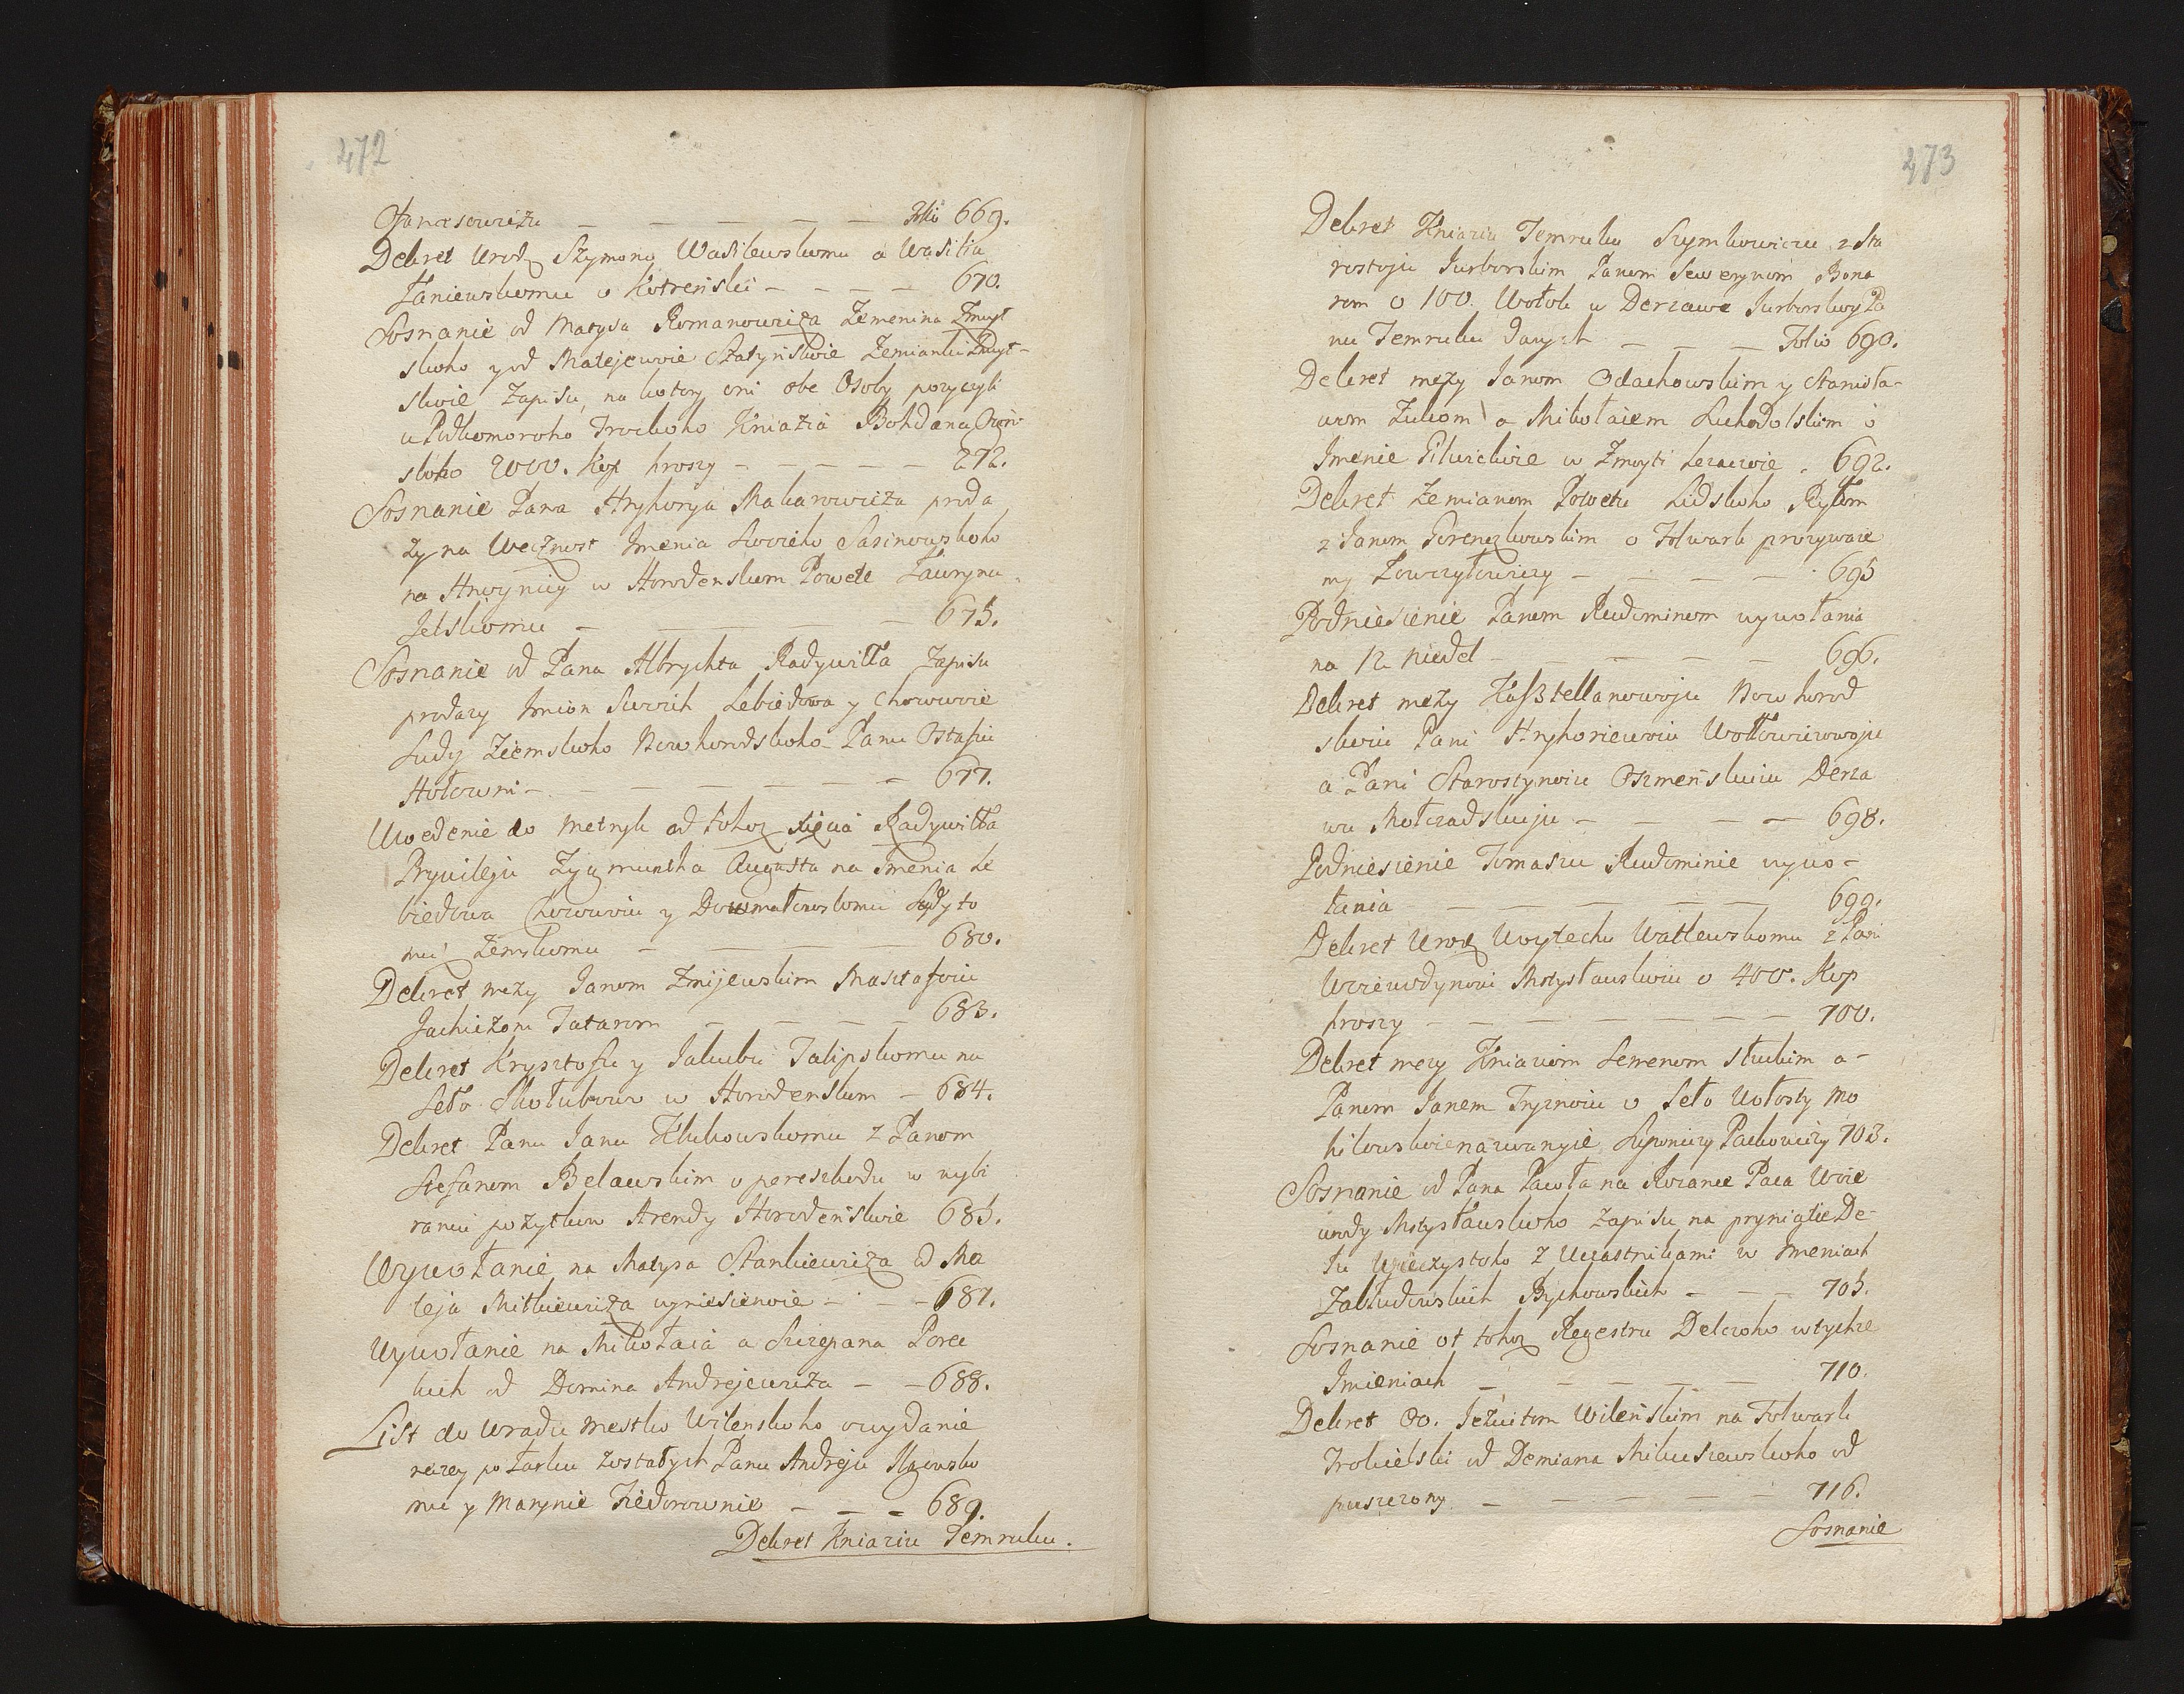 472
Ofanasowiża — — — — — Folio 669.
Dekret Urodz Szymonu Wasilewskomu a Wasiliu
Laniewskomu o Kotreński — — — — 670.
Sosnanie od Matysa Romanowiża Zemenina Zmuyt
skoho y od Matejewie Szatyńskie Zemianki Zmuyt-
skoie Zapisu, na kotory oni obe Osoby pozyczyli
u Podkomoroho Trockoho Kniazia Bohdana Ogin-
skoho 2000. kop hroszy — — — — — 272.
Sosnanie Pana Hryhorya Makarowiża proda
ży na Wecznost Imenia Swoieho Sasinowskoho
na Hwoynicy w Horodenskom Powete Lawrynu
Jelskomu — — — — — 675.
Sosnanie od Pana Albrychta Radywiłła Zapisu
prodazy Imion Swoich Lebiedowa y Chorowoie
Sudy Ziemskoho Nowhorodskoho Panu Ostafiu
Hołowni — — — — — — 677.
Uwedenie do Metryk od tohoz Xięcia Radywiłła
Prywileju Zygmuntha Augusta na Imenia Le
biedowa Chorowoiu y Dowmatowskomu Sudy to
mu Zemskomu — — — — 680.
Dekret meży Janom Zmijewskim Mastafoiu
Jachieżom Tatarom — — — — 683.
Dekret Krysztofu y Jakubu Talipskomu na
Seło Skołubowo w Horodenskom — 684.
Dekret Panu Janu Klukowskomu z Panom
Stefanom Belawskim o pereszkodu w wybi
raniu pożytkow Arendy Horodenskoie 685.
Wywołanie na Matysa Stankiewiża od Ma
teja Mitkiewiża wyniesienoie — — — 687.
Wywołanie na Mikołaia a Szczepana Porec
kich od Domina Andrejewiża — — 688.
List do Uradu Mestko Wilenskoho o wydanie
reczey po Łasku zostałych Panu Andreju Ilgowsko
mu y Marynie Fiedorownie — — — 689.
Dekret Kniaziu Temruku.
473
Dekret Kniaziu Temruku Szymkowiczu z Sta
rostoju Jurborskim Panom Sewerynom Bona
rom o 100. Wołok w Derzawe Jurborskoy Pa
nu Temruku danych — — — Folio 690.
Dekret meży Janom Odachowskim y Stanisła-
wom Zukom a Mikołaiem Suchodolskim o
Imenie Pilwickoie w Zmoyti Leżaczoie . 692.
Dekret Zemianom Powetu Lidskoho Ryłom
z Janom Porenczkowskim o Folwark prozywaie
my Łowczyłowiczy — — — — 695
Podniesienie Panom Rudominom wywołania
na 12 niedel — — — — — 696.
Dekret meży Kaßtellanowoju Nowhorod
skoiu Pani Hryhoriewoiu Wołłowiczowoju
a Pani Starostynoiu Oszmenskoiu Derża
wu Mołczadskuju — — — — 698.
Podniesienie Tomaszu Rudominie wywo-
łania — — — — — — 699.
Dekret Urodz Woytechu Watlewskomu z Pani
Woiewodynoiu Mstysławskoiu o 400. Kop
hroszy — — — — — — 700.
Dekret mezy Kniaziom Semenom Słuckim a-
Panom Janem Tryznoiu o Seło Wołosty Mo
hilowskoie nazwanyie Liponiczy Pachowiczy 703.
Sosnanie od Pana Pawła na Rożance Paca Woie
wody Mstysławskoho zapisu na pryniątie De-
łu Wieczystoho z Uczastnikami w Imeniach
Zabłudowskich Bychowskich — — — 705.
Sosnanie ot tohoz Regestru Delczoho w tychże
Imieniach — — — — — 710.
Dekret Oo. Jezuitom Wileńskim na Folwark
Trokielski od Demiana Mikuszewskoho od
puszczony — — — — — — 716.
Sosnanie